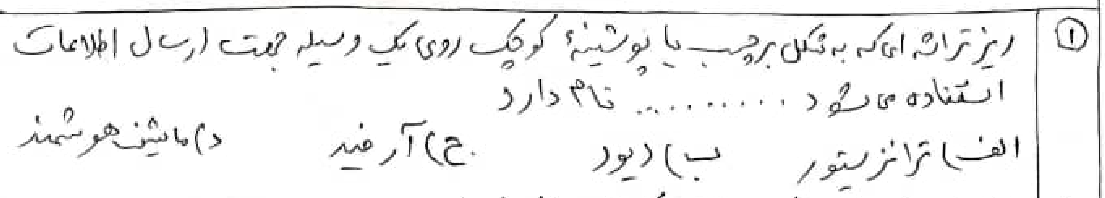 ۱ ریز تراشه ای که به شکل برچسب یا پوشینهٔ کوچک روی یک وسیله جهت ارسال اطلاعات
استفاده می شود .......... نام دارد
الف) ترانزیستور ب) دیود ج) آر فید د) ماشین هوشمند